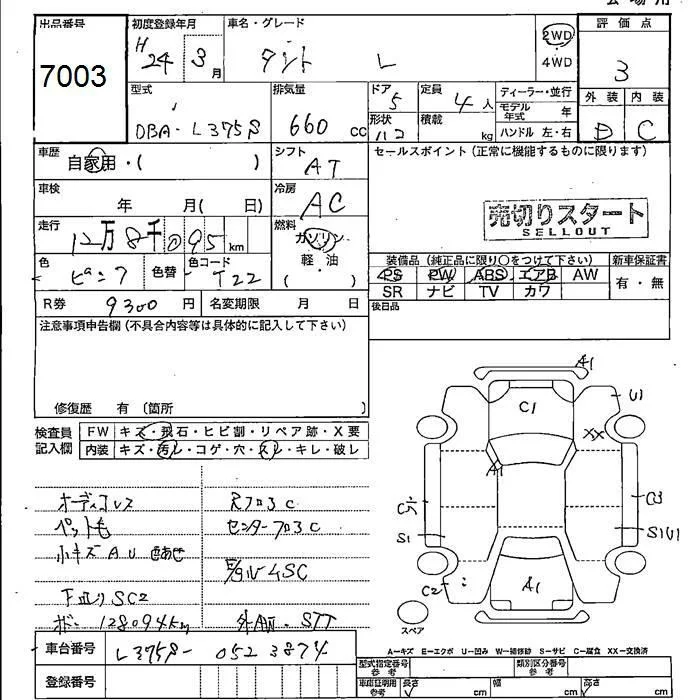 出品番号 初度登録年月 車名・グレード 評価点
7003 H 24 3月 タント L 2WD 4WD 3
型式 排気量 ドア 5 定員 4人 ディーラー・並行 外装 内装
DBA-L375S 660 cc 形状 積載 kg モデル年式 年 D C
ハンドル 左・右
車歴 自家用・( ) シフト AT セールスポイント(正常に機能するものに限ります)
車検 年 月( 日) 冷房 AC
売切りスタート
SELLOUT
走行 12万8千095 km 燃料 ガソリン 軽・油 ( )
色 ピンク 色替 色コード T22
装備品(純正品に限り○をつけて下さい) 新車保証書
PS PW ABS エアB AW 有・無
SR ナビ TV カワ
R券 9300円 名変期限 月 日 後日品
注意事項申告欄(不具合内容等は具体的に記入して下さい)
修復歴 有(箇所 )
検査員記入欄 FW キズ・飛石・ヒビ割・リペア跡・X要
内装 キズ・汚レ・コゲ・穴・スレ・キレ・破レ
オーディオレス
ペット毛
小キズAU
SC2
128094km
センターフロアC
SC
A1
U1
C1
XX
A1
S1
S1U1
C2
A1
スペア
A―キズ E―エクボ U―凹み W―補修跡 S―サビ C―腐食 XX―交換済
車台番号 L375S- 0523874
登録番号
型式指定番号 参考 類別区分番号 参考
車庫証明用 参考 長さ cm 幅 cm 高さ cm